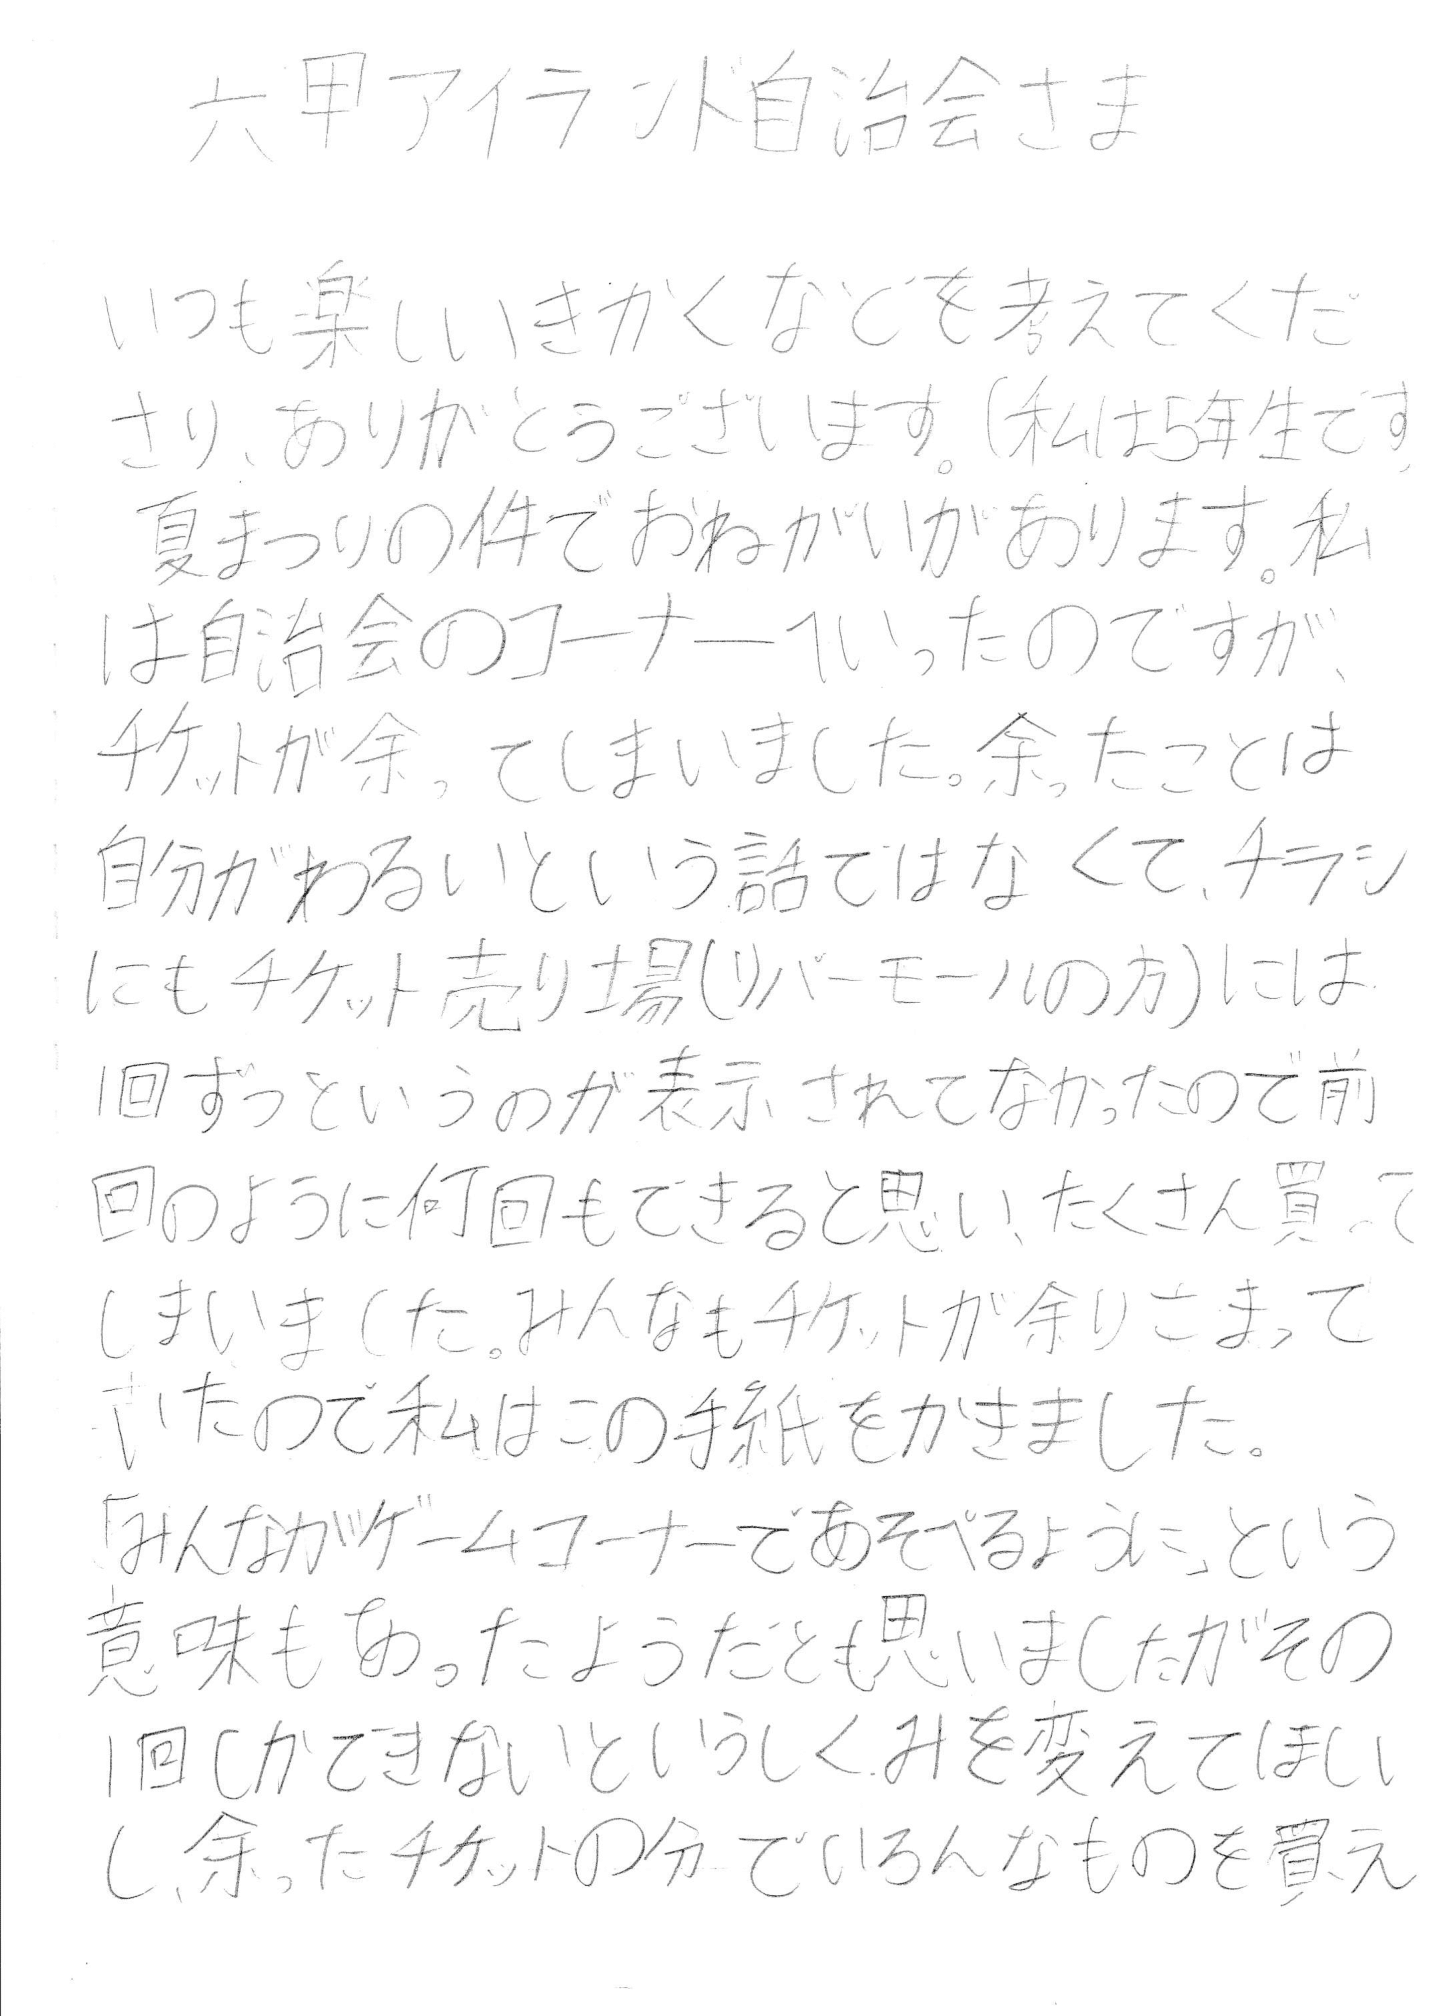 六甲アイランド自治会さま
いつも楽しいきかくなどを考えてくだ
さり、ありがとうございます。(私は5年生です
夏まつりの件でおねがいがあります。私
は自治会のコーナーへいったのですが、
チケットが余ってしまいました。余ったことは
自分がわるいという話ではなくて、チラシ
にもチケット売り場(リバーモールの方)には
1回ずつというのが表示されてなかったので前
回のように何回もできると思い、たくさん買って
しまいました。みんなもチケットが余りこまって
いたので私はこの手紙をかきました。
「みんながゲームコーナーであそべるように」という
意味もあったようだとも思いましたがその
1回しかできないというしくみを変えてほしい
し、余ったチケットの分でいろんなものを買え